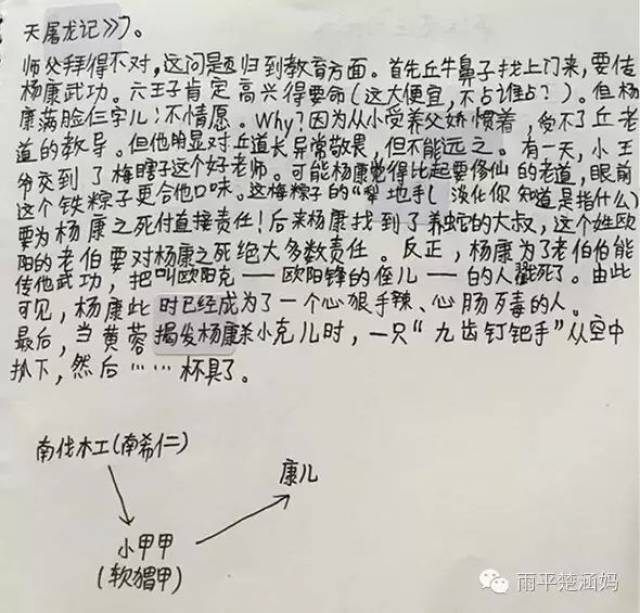 天屠龙记》了。
师父拜得不对，这问题归到教育方面。首先丘牛鼻子找上门来，要传
杨康武功。六王子肯定高兴得要命（这大便宜，不占谁占？）。但杨
康满脸仨字儿：不情愿。Why？因为从小受养父娇惯着，受不了丘老
道的教导。但他明显对丘道长异常敬畏，但不能远之。有一天，小王
爷交到了梅瞎子这个好老师。可能杨康觉得比起要修仙的老道，眼前
这个铁粽子更合他口味。这梅粽子的“犁地手（淡化你知道是指什么）
要为杨康之死付直接责任！后来杨康找到了养蛇的大叔，这个姓欧
阳的老伯要对杨康之死绝大多数责任。反正，杨康为了老伯伯能
传他武功，把叫欧阳克——欧阳锋的侄儿——的人戳死了。由此
可见，杨康此时已经成为了一个心狠手辣、心肠歹毒的人。
最后，当黄蓉揭发杨康杀小克儿时，一只“九齿钉钯手”从空中
扒下，然后……杯具了。
南伐木工(南希仁)
康儿
小甲甲
(软猬甲)
雨平楚涵妈